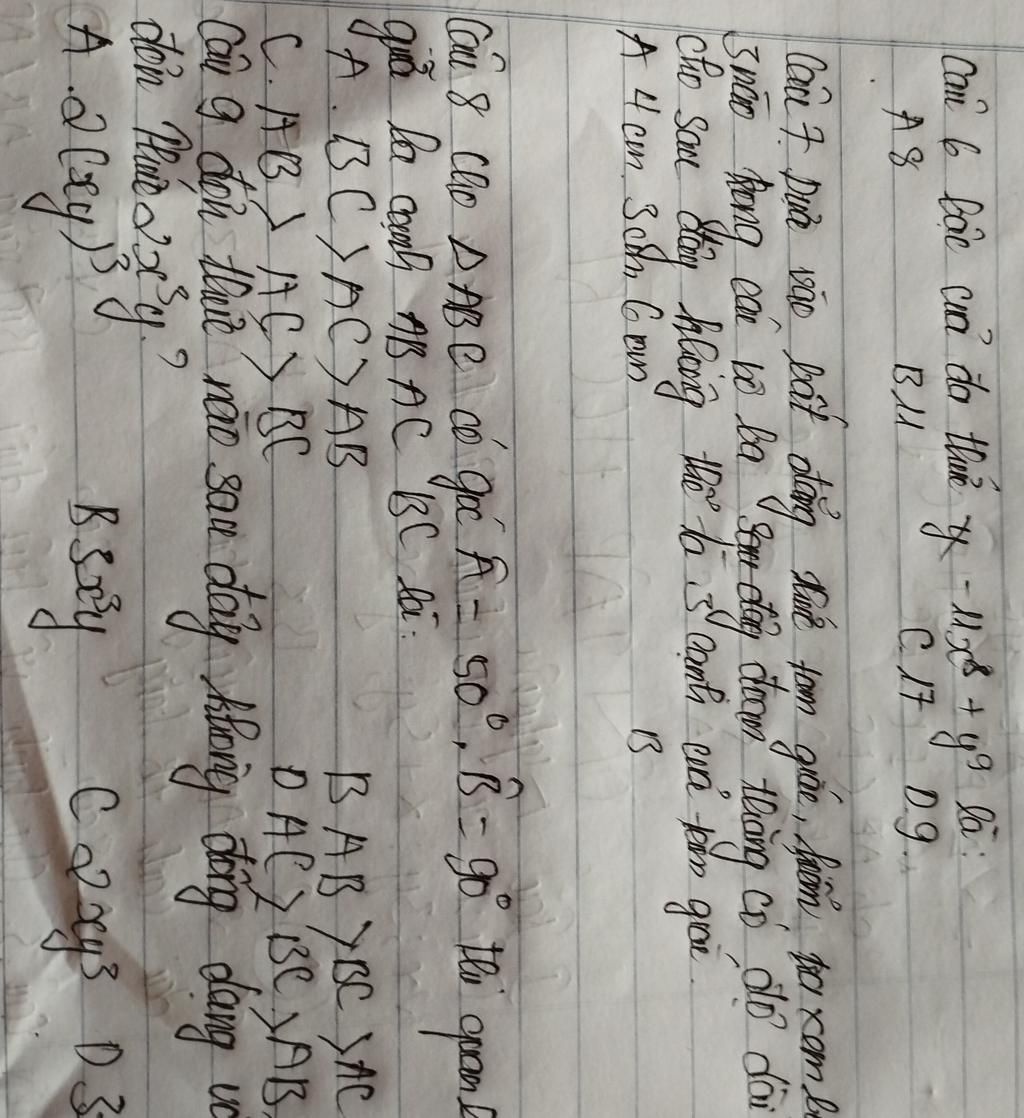 Câu 6 bậc của đa thức - 11x⁸ + y⁹ là:
A 8 B 11 C. 17 D 9.
Câu 7. Dựa vào bất đẳng thức tam giác, kiểm tra xem b
3 nào trong các bộ ba sau đây đoạn thẳng có độ dài
cho sau đây không thể là 3 cạnh của tam giác.
A 4cm. 3cm, 6cm B
Câu 8 Cho ΔABC có góc Â = 50°, B̂ = 90° thì quan h
giữa ba cạnh AB AC BC là:
A. BC > AC > AB B AB > BC > AC
C. AB > AC > BC D AC > BC > AB.
Câu 9 đơn thức nào sau đây không đồng dạng vớ
đơn thức 2x³y?
A. 2(xy)³ B 3x³y C 2xy³ D 3